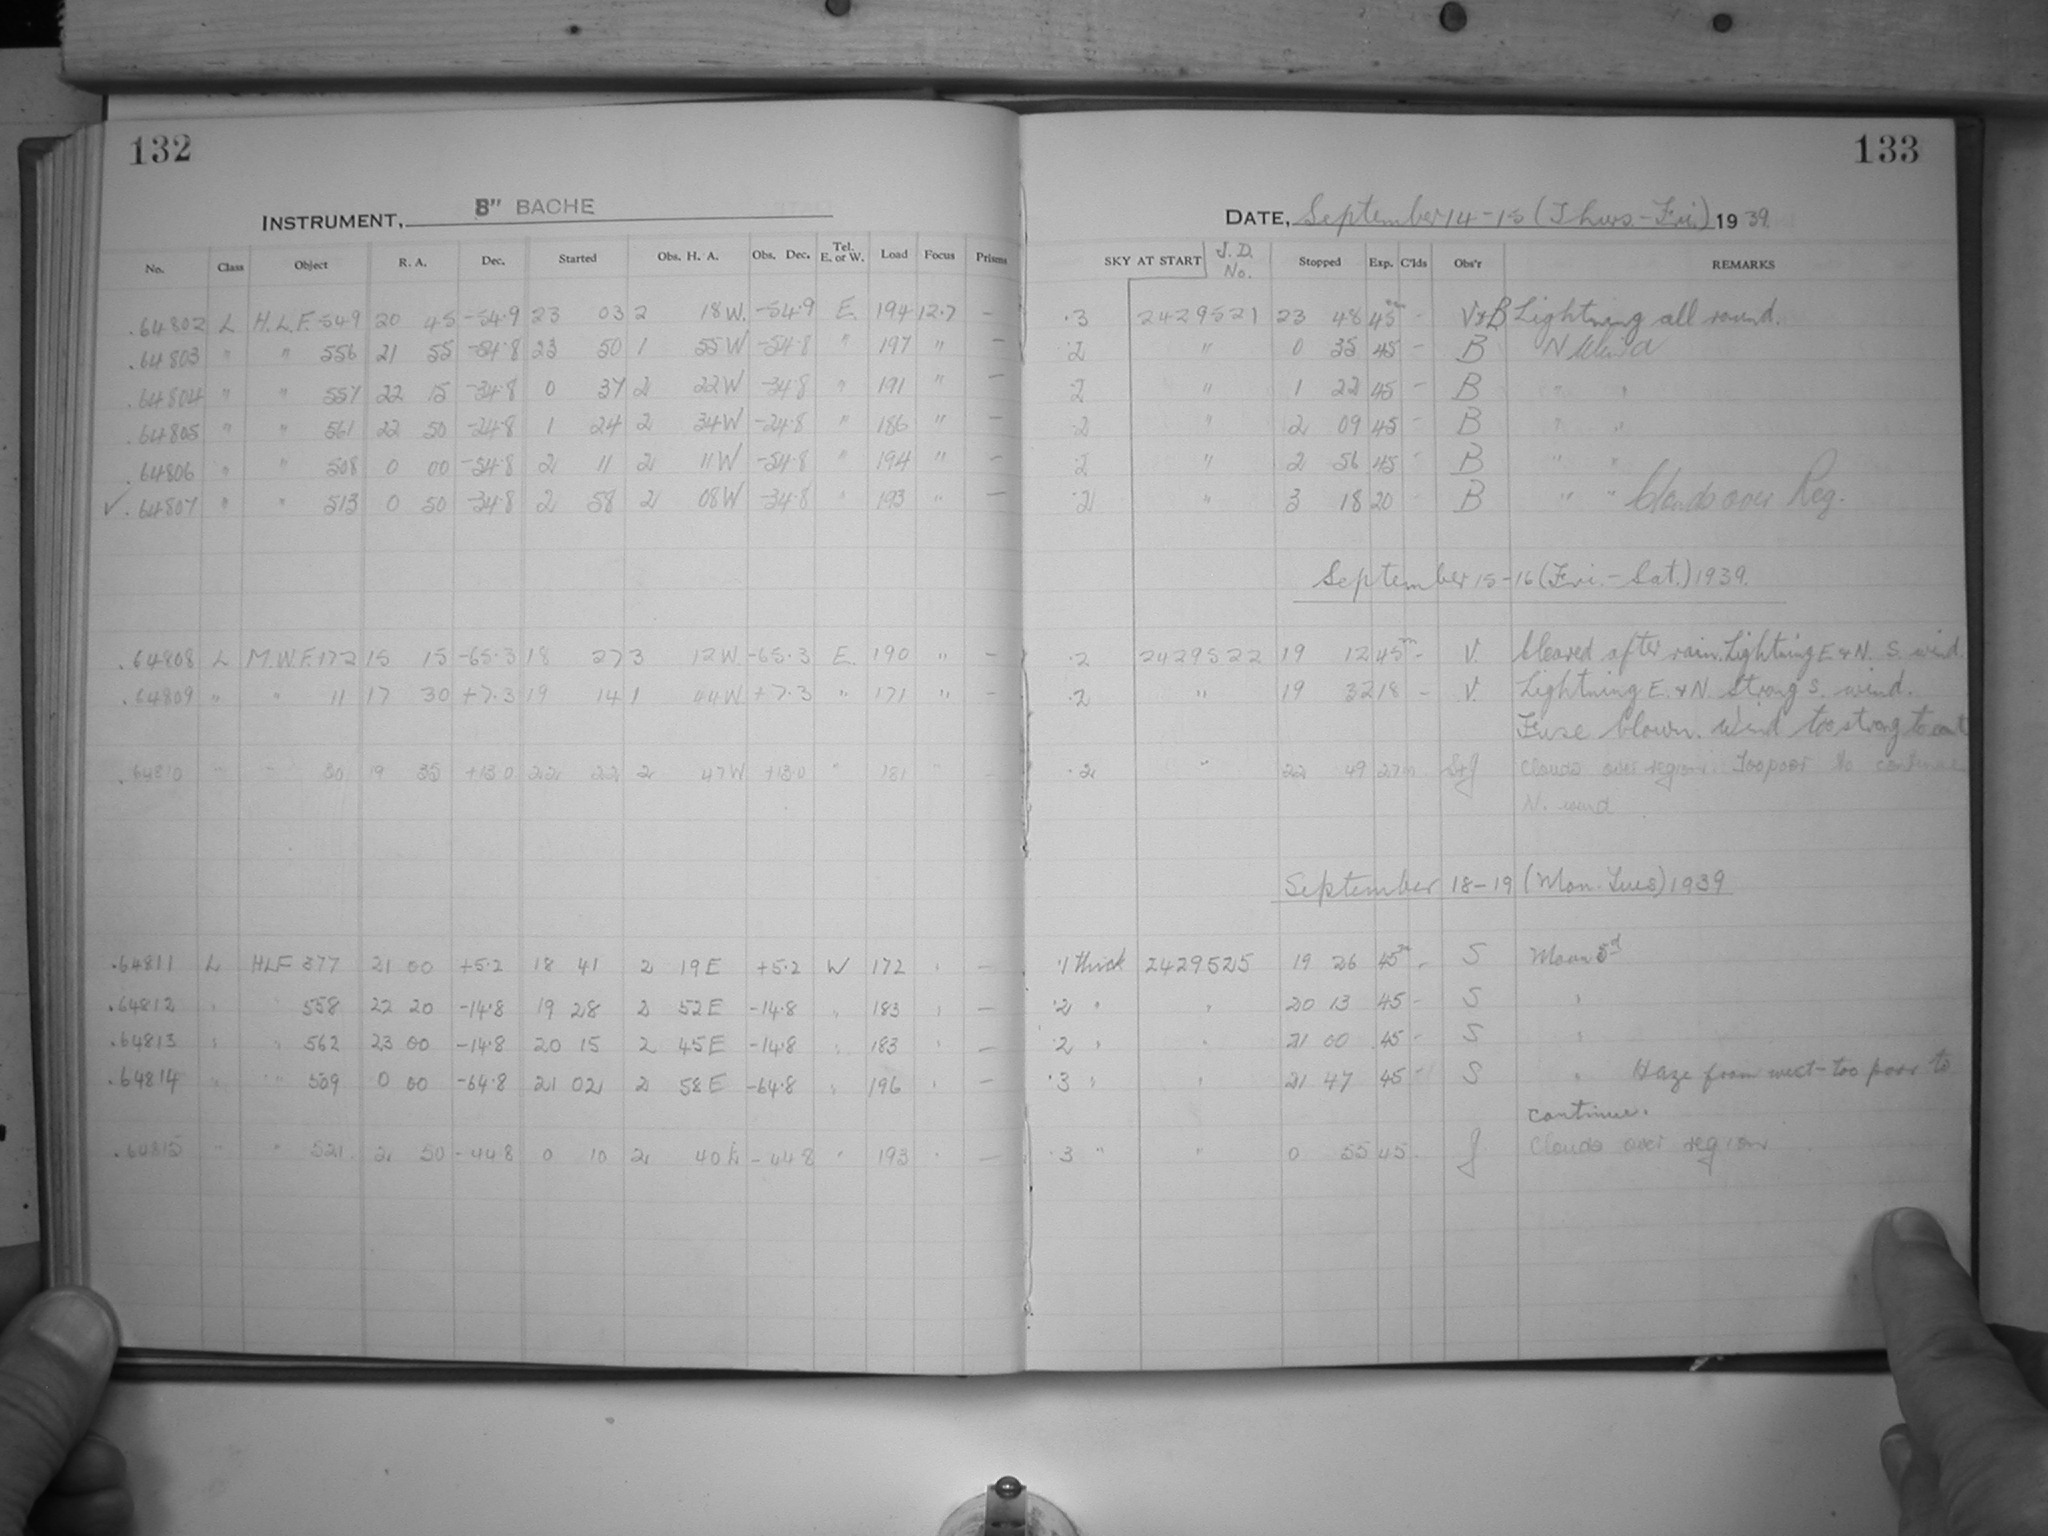 132
INSTRUMENT, 8" BACHE
No. Class Object R. A. Dec. Started Obs. H. A. Obs. Dec. Tel. E. or W. Load Focus Prisms
.64802 L H.L.F. 549 20 45 -54.9 23 03 2 18 W. -54.9 E. 194 12.7 –
.64803 " " 556 21 55 -54.8 23 50 1 55 W -54.8 " 197 " –
.64804 " " 557 22 15 -34.8 0 37 2 22 W -34.8 " 191 " –
.64805 " " 561 22 50 -24.8 1 24 2 34 W -24.8 " 186 " –
.64806 " " 508 0 00 -54.8 2 11 2 11 W -54.8 " 194 " –
✓ .64807 " " 513 0 50 -34.8 2 58 2 08 W -34.8 " 193 " –
.64808 L M.W.F. 172 15 15 -65.3 18 27 3 12 W. -65.3 E. 190 " –
.64809 " " 11 17 30 +7.3 19 14 1 44 W. +7.3 " 171 " –
.64810 " " 30 19 35 +13.0 22 22 2 47 W +13.0 " 181 " –
.64811 L HLF 377 21 00 +5.2 18 41 2 19 E +5.2 W 172 " –
.64812 " " 558 22 20 -14.8 19 28 2 52 E -14.8 " 183 " –
.64813 " " 562 23 00 -14.8 20 15 2 45 E -14.8 " 183 " –
.64814 " " 509 0 00 -64.8 21 02 2 58 E -64.8 " 196 " –
.64815 " " 521 2 50 -44.8 0 10 2 40 E -44.8 " 193 " –
133
DATE, September 14-15 (Thurs-Fri.) 1939.
SKY AT START J. D. No. Stopped Exp. C'lds Obs'r REMARKS
.3 2429521 23 48 45m – V+B Lightning all round.
.2 " 0 35 45 – B N Wind
.2 " 1 22 45 – B " "
.2 " 2 09 45 – B " "
.2 " 2 56 45 – B " "
.2 " 3 18 20 – B " " Clouds over Reg.
September 15-16 (Fri.-Sat.) 1939.
.2 2429522 19 12 45m – V. Cleared after rain. Lightning E & N. S. wind.
.2 " 19 32 18 – V. Lightning E. & N. Strong S. wind.
Fuse blown. Wind too strong to cont
.2 " 22 49 27m S+J Clouds over region. Too poor to continue
N. wind
September 18-19 (Mon-Tues) 1939
.1 thick 2429525 19 26 45m – S Moon 5d
.2 " " 20 13 45 – S "
.2 " " 21 00 45 – S "
.3 " " 21 47 45 – S " Haze from west – too poor to
continue.
.3 " " 0 55 45 – J Clouds over region